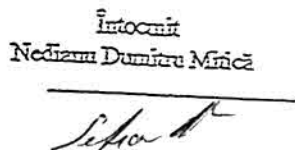 Întocmit
Nedianu Dumitru Mitică